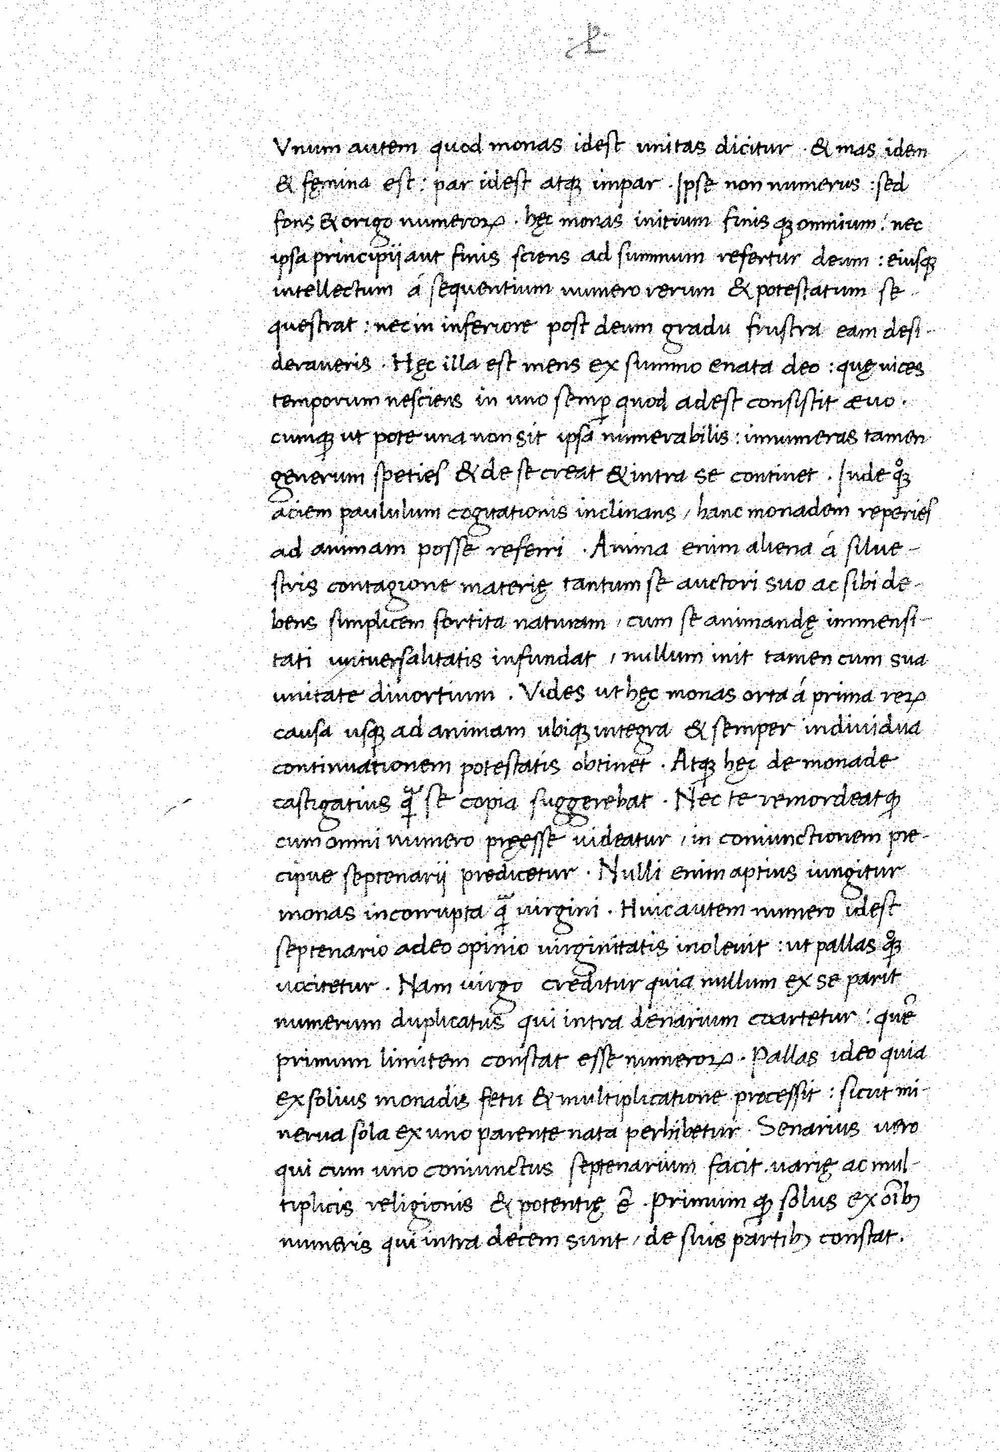 Vnum autem quod monas idest unitas dicitur · & mas idem
& fęmina est : par idest atqꝫ impar · Ipse non numerus : sed
fons & origo numeroꝝ · hęc monas initium finis qꝫ omnium : nec
ipsa principii aut finis sciens ad summum refertur deum : eiusqꝫ
intellectum á sequentium numero rerum & potestatum se-
questrat : nec in inferiore post deum gradu frustra eam desi-
deraueris · Hęc illa est mens ex summo enata deo : quę uices
temporum nesciens in uno semꝑ quod adest consistit æuo ·
cumqꝫ ut pote una non sit ipsa numerabilis : innumeras tamen
generum speties & de se creat & intra se continet · Inde qͦꝫ
aciem paululum cogitationis inclinans / hanc monadem reperies
ad animam posse referri · Anima enim aliena á silue-
stris contagione materię tantum se auctori suo ac sibi de-
bens simplicem sortita naturam / cum se animandę immensi-
tati uniuersalitatis infundat / nullum init tamen cum sua
unitate diuortium · Vides ut hęc monas orta á prima reꝝ
causa usqꝫ ad animam ubiqꝫ integra & semper indiuidua
continuationem potestatis obtinet · Atqꝫ hęc de monade
castigatius q̃ꝫ se copia suggerebat · Nec te remordeat qꝫ
cum omni numero pręesse uideatur / in coniunctionem pre-
cipue septenarii predicetur · Nulli enim aptius iungitur
monas incorrupta q̃ꝫ uirgini · Huic autem numero idest
septenario adeo opinio uirginitatis inoleuit : ut pallas qͦꝫ
uocitetur · Nam uirgo creditur quia nullum ex se parit
numerum duplicatus qui intra denarium coartetur : quē
primum limitem constat esse numeroꝝ · Pallas ideo quia
ex solius monadis fetu & multiplicatione processit : sicut mi-
nerua sola ex uno parente nata perhibetur · Senarius uero
qui cum uno coniunctus septenarium facit uarię ac mul-
tiplicis religionis & potentię ē · Primum qꝫ solus ex oībꝫ
numeris qui intra decem sunt / de suis partibꝫ constat ·